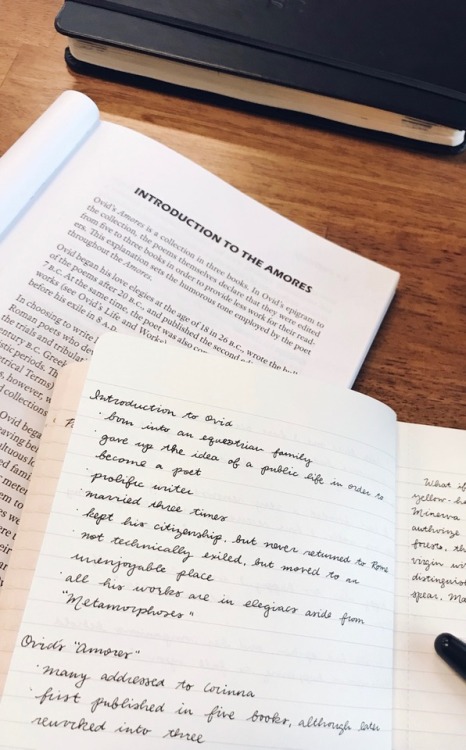 INTRODUCTION TO THE AMORES
Ovid's Amores is a collection in three books. In Ovid's epigram to
the collection, the poems themselves declare that they were edited
from five to three books in order to provide less work for their read-
ers. This explanation sets the humorous tone employed by the poet
throughout the Amores.
Ovid began his love elegies at the age of 18 in 26 B.C., wrote the
of the poems after 20 B.C. and published the second
7 B.C. At the same time, the poet was also
works (see Ovid's Life and Works)
before his exile in 8 A.D.
In choosing to write
Roman poets who
the trials and
century B.C. Greek
periods. Th
Terms)
s, however, w
d collections
Ovid bega
Introduction to Ovid
· born into an equestrian family
· gave up the idea of a public life in order to
become a poet
· prolific writer
· married three times
· kept his citizenship, but never returned to Rome
· not technically exiled, but moved to an
unenjoyable place
· all his works are in elegiacs aside from
"Metamorphoses"
Ovid's "Amores"
· many addressed to Corinna
· first published in five books, although later
reworked into three
What if
yellow-h
Minerva
authorize
virgin wi
distinguis
spear, Ma